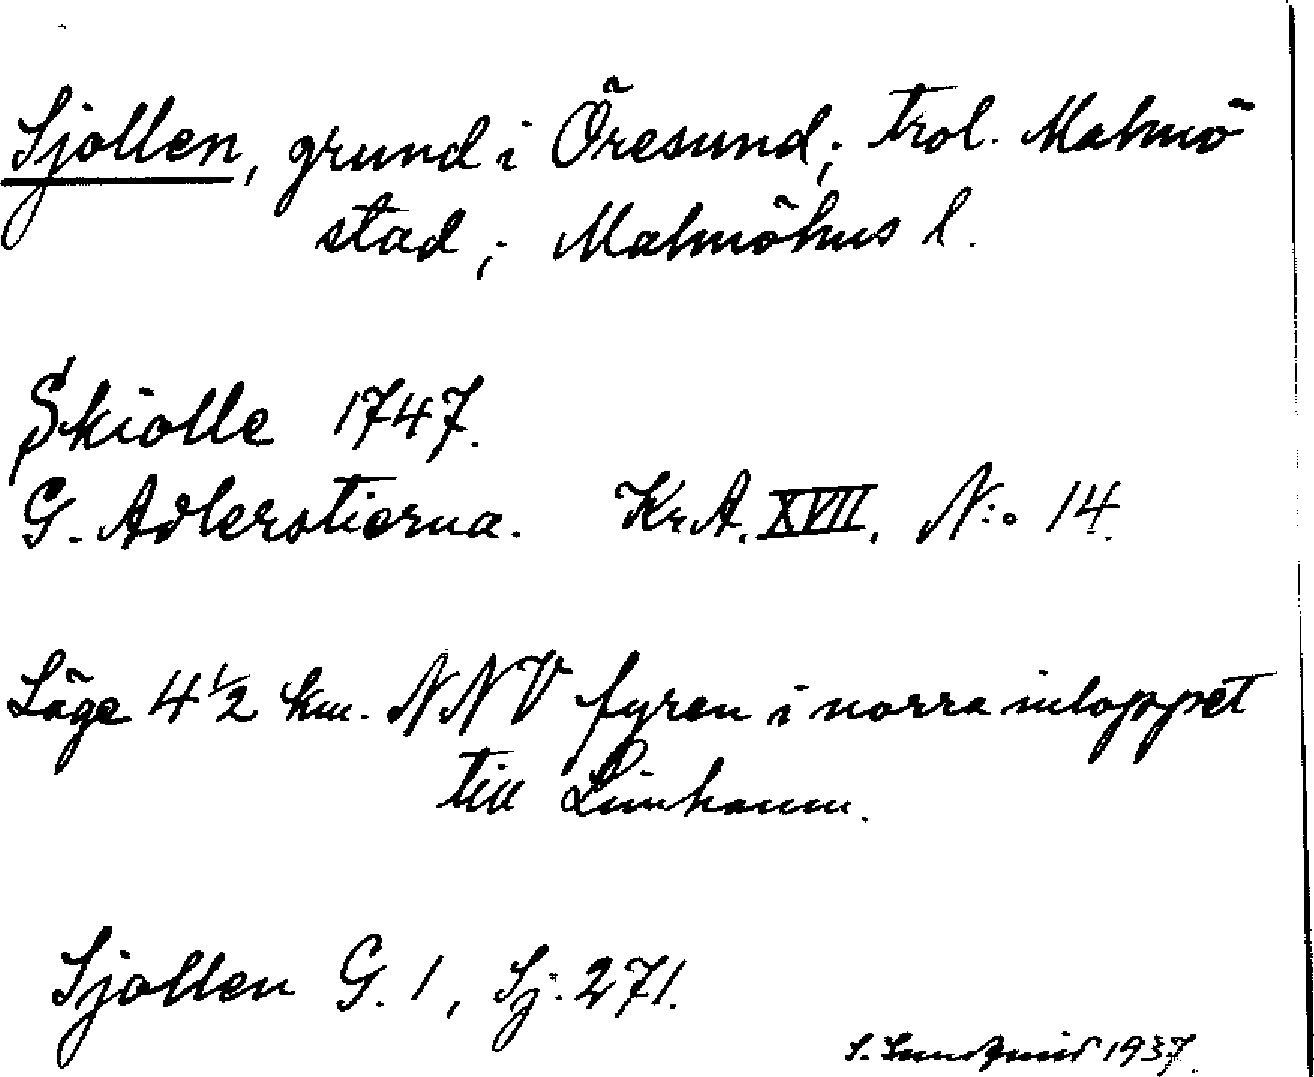 Sjollen, grund i Öresund; trol. Malmö
stad; Malmöhus l.
Skiolle 1747.
G. Adlerstierna. Kr.A. XVII. N:o 14.
Läge 4 1/2 km. NNV fyren i norra inloppet
till Limhamn.
Sjollen G. 1, Sj. 271.
S. Lundquist 1937.